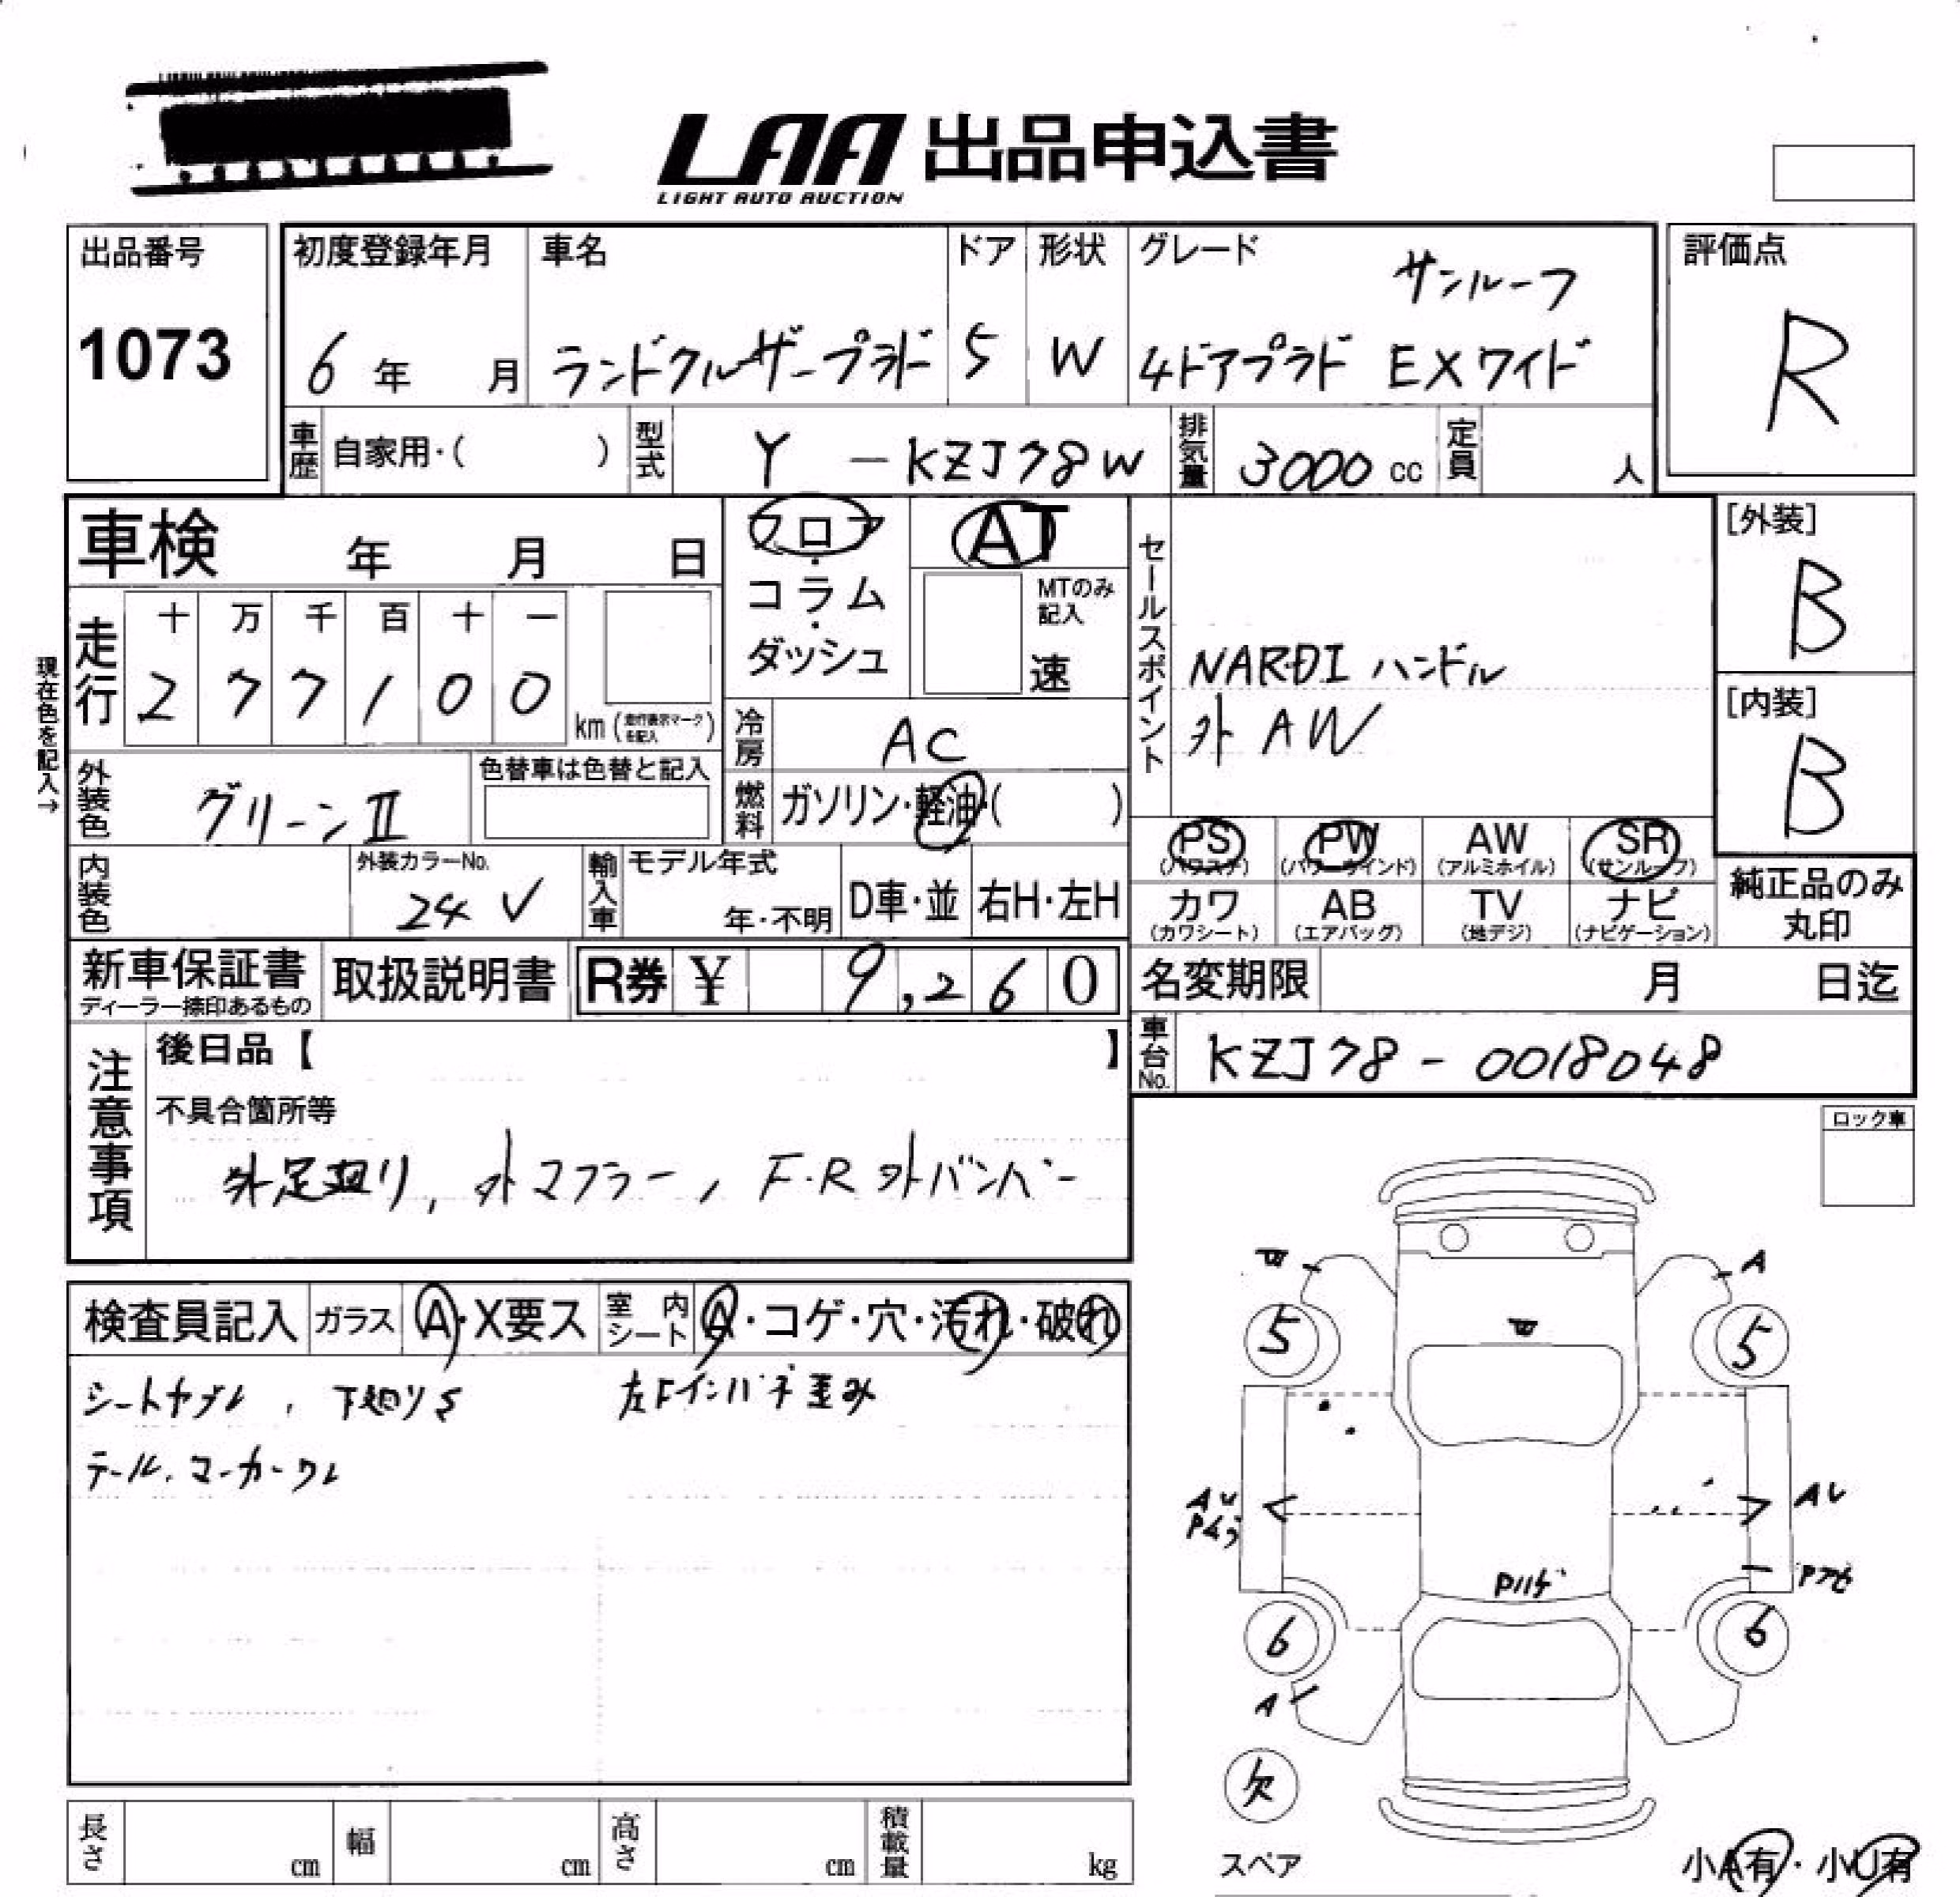 LAA 出品申込書
LIGHT AUTO AUCTION
出品番号
1073
初度登録年月
6年 月
車名
ランドクルーザープラド
ドア
5
形状
W
グレード
サンルーフ
4ドアプラド EXワイド
評価点
R
車歴 自家用・( )
型式 Y - KZJ78W
排気量 3000 cc
定員 人
車検 年 月 日
フロア・コラム・ダッシュ
AT
MTのみ記入
速
セールスポイント
NARDI ハンドル
外 AW
[外装]
B
[内装]
B
現在色を記入→
走行
十 万 千 百 十 一
2 7 7 1 0 0
km (走行表示マークを記入)
冷房 AC
外装色 グリーンⅡ
色替車は色替と記入
燃料 ガソリン・軽油・( )
PS (パワステ) PW (パワーウインド) AW (アルミホイル) SR (サンルーフ)
カワ (カワシート) AB (エアバッグ) TV (地デジ) ナビ (ナビゲーション)
純正品のみ丸印
内装色
外装カラーNo.
24 V
輸入車
モデル年式
年・不明
D車・並
右H・左H
新車保証書
ディーラー捺印あるもの
取扱説明書
R券 ¥ 9,260
名変期限 月 日迄
車台No. KZJ78-0018048
注意事項
後日品【 】
不具合箇所等
外足廻り, 外マフラー, F・R 外バンパー
ロック車
検査員記入
ガラス A・X要ス
室内シート A・コゲ・穴・汚れ・破れ
シートヤブレ, 下廻りS 左Fインパネ歪み
テール, マーカーワレ
W
A
5
W
5
AU
AU
Pハゲ
6
6
A
欠
スペア
小A有・小U有
長さ cm
幅 cm
高さ cm
積載量 kg